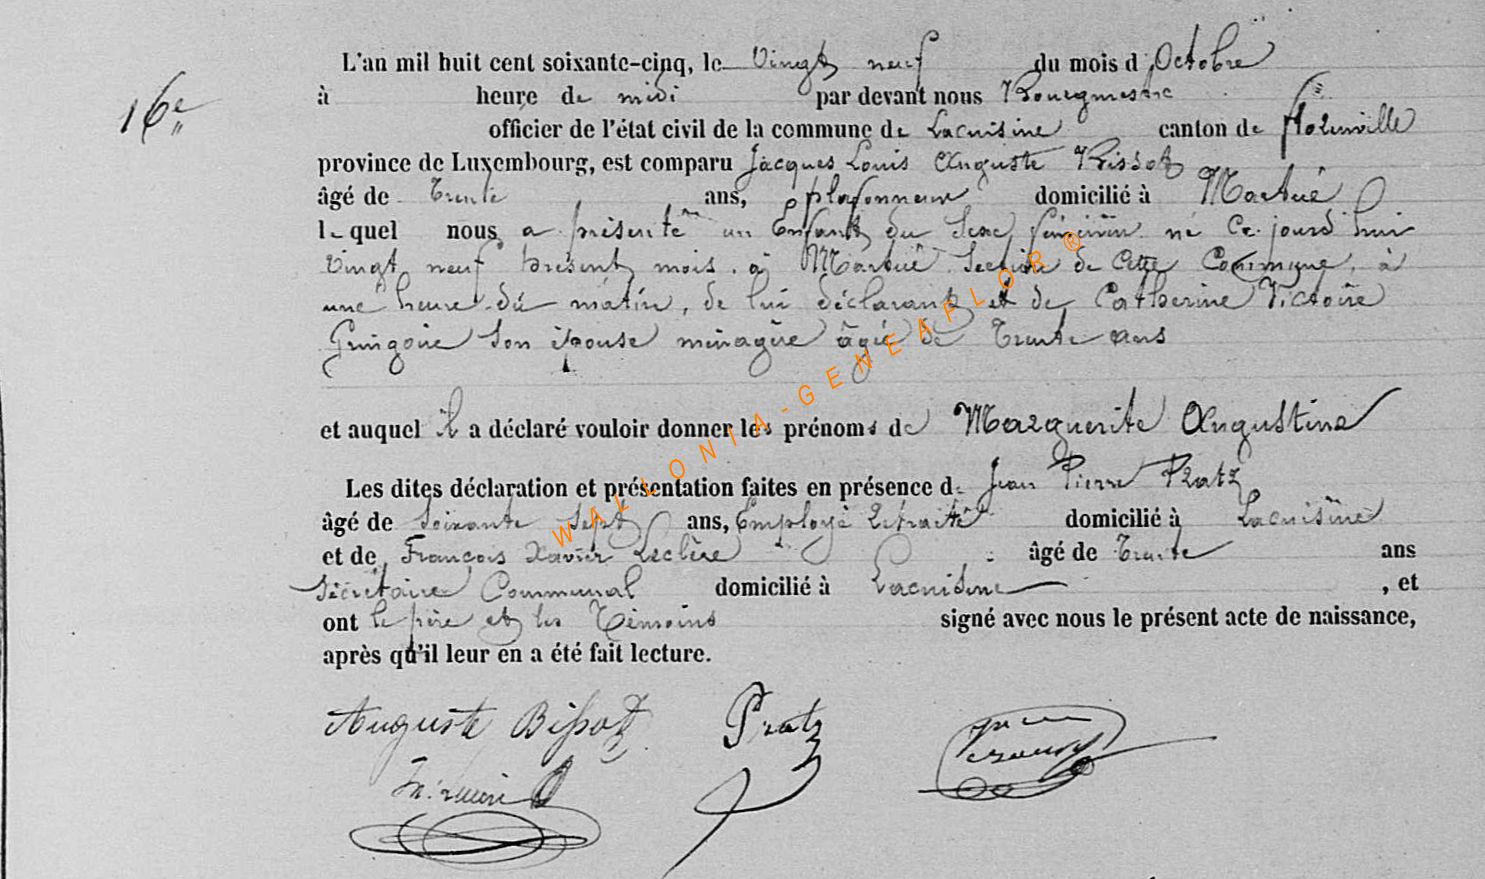 16e
L'an mil huit cent soixante-cinq, le Vingt neuf du mois d'Octobre
à heure de midi par devant nous Bourgmestre
officier de l'état civil de la commune de Lacuisine canton de Florenville
province de Luxembourg, est comparu Jacques Louis Auguste Bissot
âgé de Trente ans, plafonneur domicilié à Martué
lequel nous a présenté un Enfant du Sexe féminin né Ce jourd'hui
Vingt neuf présent mois, à Martué Section de Cette Commune, à
une heure du matin, de lui déclarant et de Catherine Victoire
Gringoire Son épouse ménagère âgée de Trente ans
et auquel il a déclaré vouloir donner les prénoms de Marguerite Augustine
Les dites déclaration et présentation faites en présence de Jean Pierre Pratz
âgé de Soixante Sept ans, Employé retraité domicilié à Lacuisine
et de François Xavier Leclère âgé de Trente ans
Sécrétaire Communal domicilié à Lacuisine , et
ont le père et les Témoins signé avec nous le présent acte de naissance,
après qu'il leur en a été fait lecture.
Auguste Bissot Pratz
WALLONIA-GENEAFLOR®